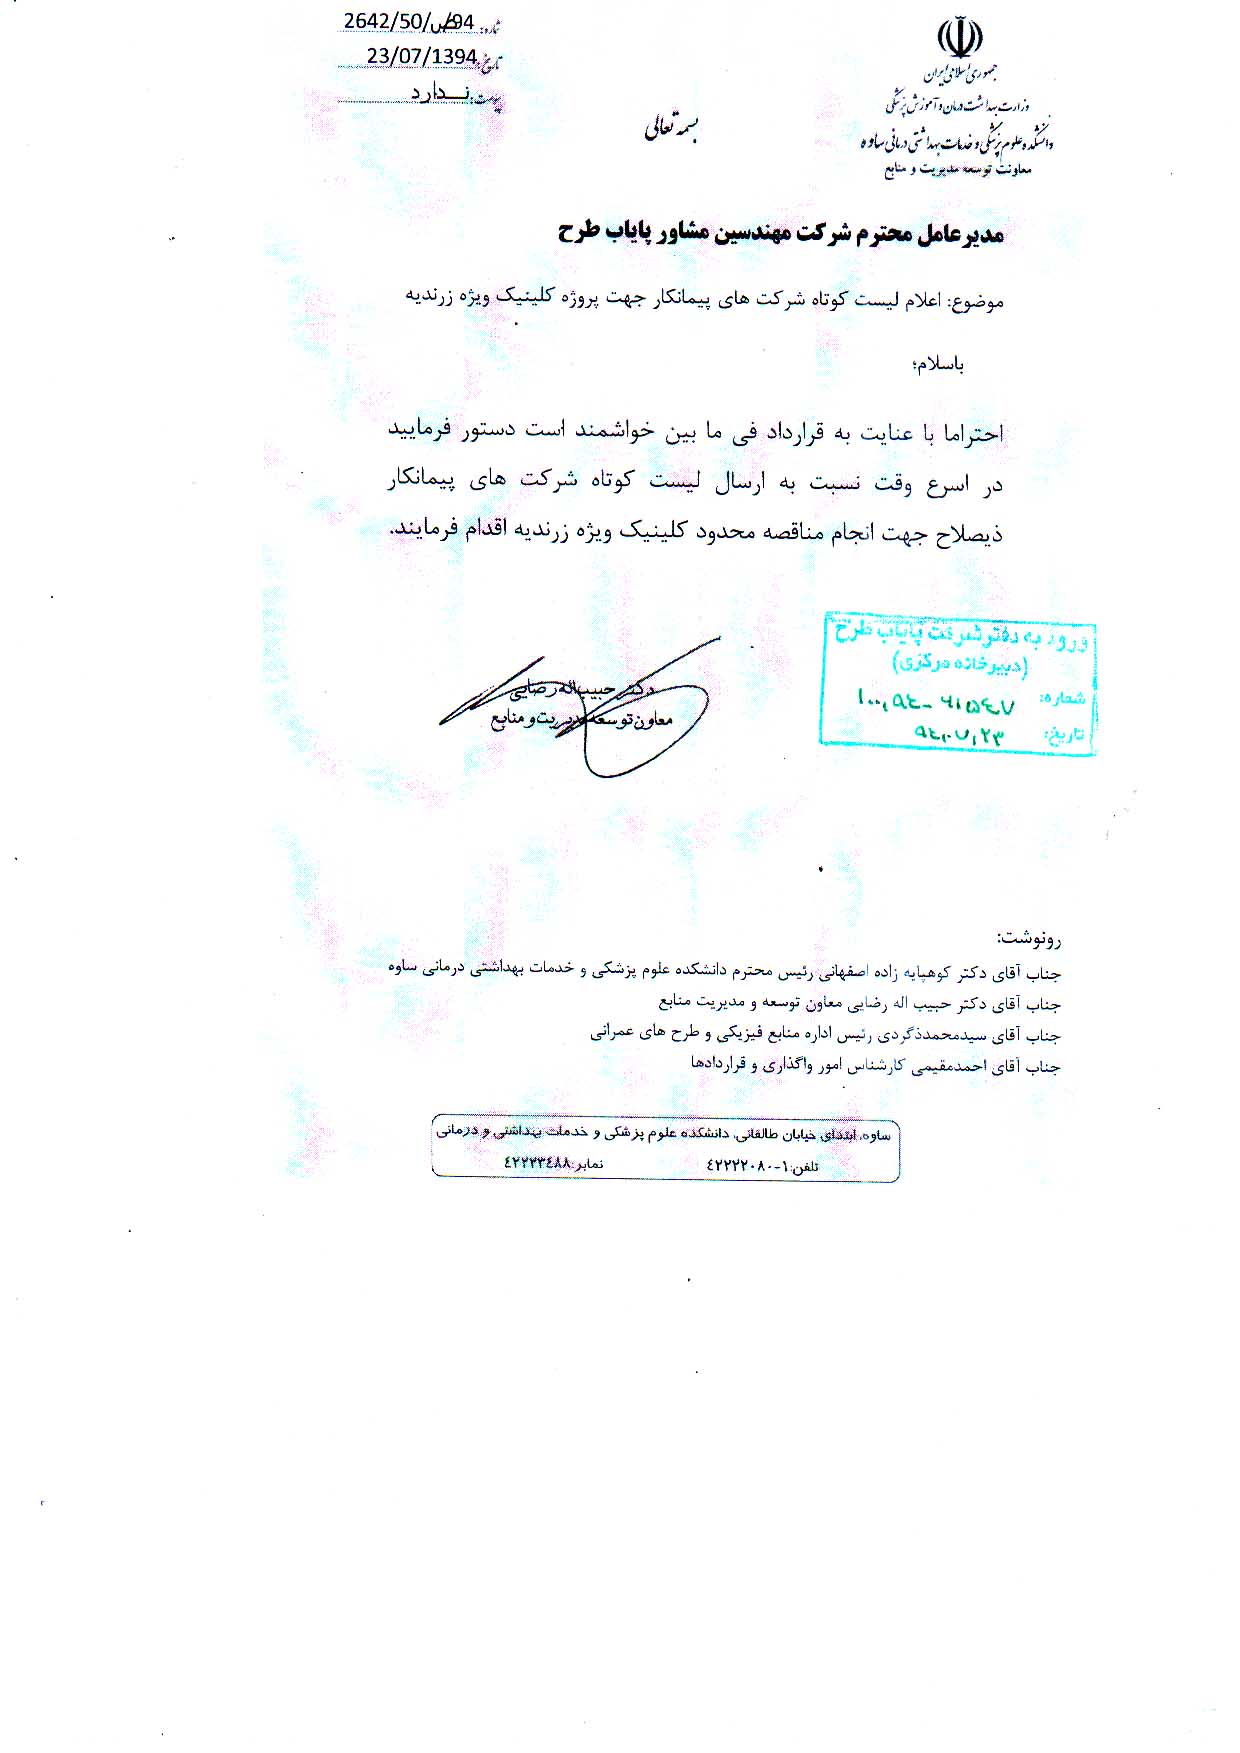 جمهوری اسلامی ایران
وزارت بهداشت درمان و آموزش پزشکی
دانشکده علوم پزشکی و خدمات بهداشتی درمانی ساوه
معاونت توسعه مدیریت و منابع
شماره: 94/ص/2642/50
تاریخ: 23/07/1394
پیوست: ندارد
بسمه تعالی
مدیرعامل محترم شرکت مهندسین مشاور پایاب طرح
موضوع: اعلام لیست کوتاه شرکت های پیمانکار جهت پروژه کلینیک ویژه زرندیه
باسلام؛
احتراما با عنایت به قرارداد فی ما بین خواشمند است دستور فرمایید
در اسرع وقت نسبت به ارسال لیست کوتاه شرکت های پیمانکار
ذیصلاح جهت انجام مناقصه محدود کلینیک ویژه زرندیه اقدام فرمایند.
دکتر حبیب اله رضایی
معاون توسعه مدیریت و منابع
ورود به دفتر شرکت پایاب طرح
(دبیرخانه مرکزی)
شماره:
تاریخ:
رونوشت:
جناب آقای دکتر کوهپایه زاده اصفهانی رئیس محترم دانشکده علوم پزشکی و خدمات بهداشتی درمانی ساوه
جناب آقای دکتر حبیب اله رضایی معاون توسعه و مدیریت منابع
جناب آقای سیدمحمدذگردی رئیس اداره منابع فیزیکی و طرح های عمرانی
جناب آقای احمدمقیمی کارشناس امور واگذاری و قراردادها
ساوه، ابتدای خیابان طالقانی، دانشکده علوم پزشکی و خدمات بهداشتی و درمانی
تلفن: ۱-۴۲۲۲۲۰۸۰ نمابر: ۴۲۲۳۳۴۸۸